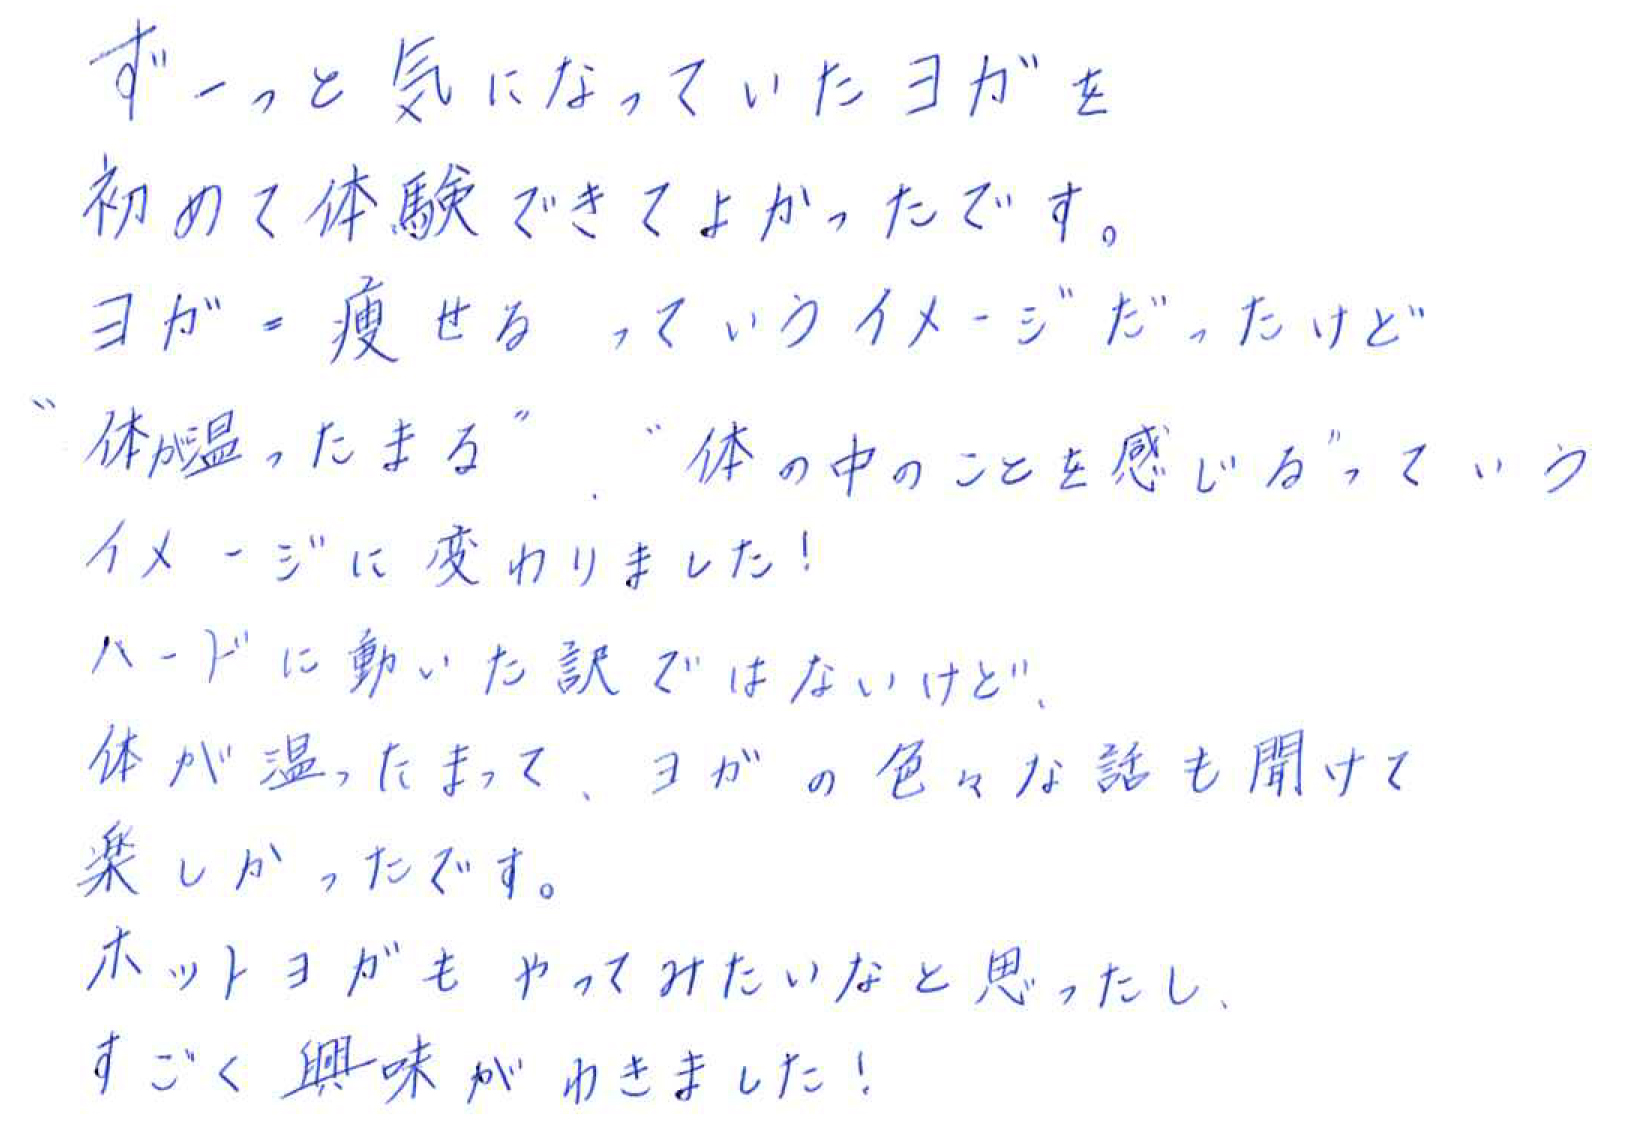 ずーっと気になっていたヨガを
初めて体験できてよかったです。
ヨガ=痩せるっていうイメージだったけど
"体が温ったまる"、"体の中のことを感じる"っていう
イメージに変わりました!
ハードに動いた訳ではないけど、
体が温ったまって、ヨガの色々な話も聞けて
楽しかったです。
ホットヨガもやってみたいなと思ったし、
すごく興味がわきました!